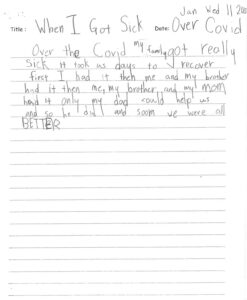 Jan Wed 11
Title: When I Got Sick Date: Over Covid
Over the Covid my family got really
sick it took us days to recover
first I had it then me and my brother
had it then me, my brother, and my mom
had it only my dad could help us
and so he did and soom we were all
BETTER